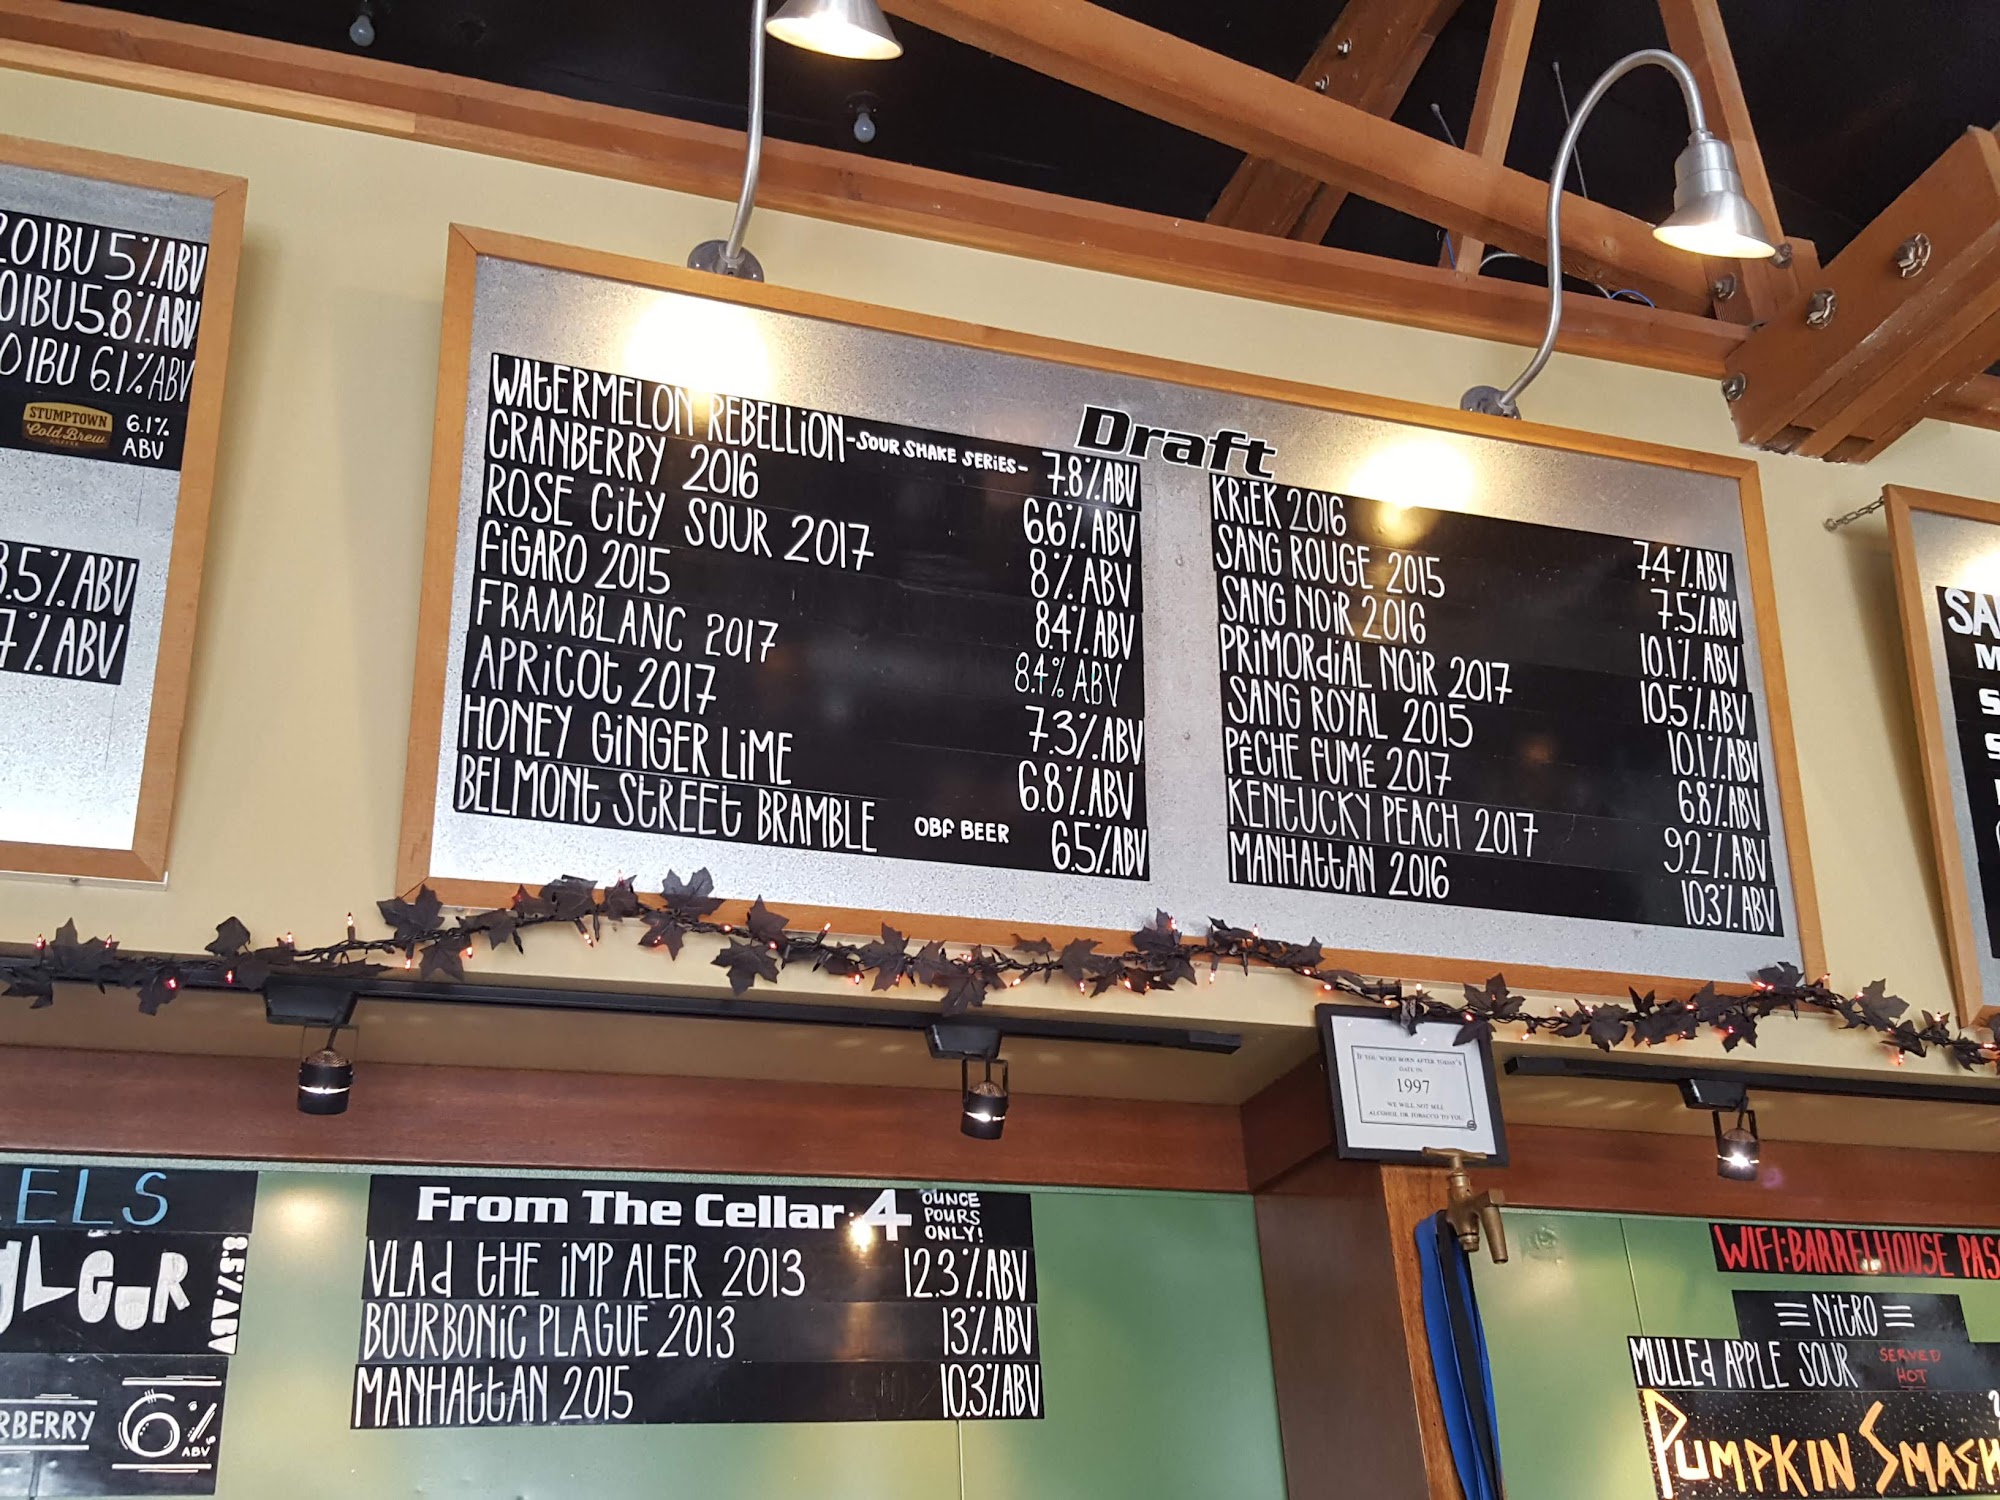 20IBU 5% ABV
0IBU 5.8% ABV
0IBU 6.1% ABV
STUMPTOWN
Cold Brew
COFFEE
6.1%
ABV
3.5% ABV
7% ABV
Draft
WATERMELON REBELLION -SOUR SHAKE SERIES- 7.8% ABV
CRANBERRY 2016 6.6% ABV
ROSE CITY SOUR 2017 8% ABV
FIGARO 2015 8.4% ABV
FRAMBLANC 2017 8.4% ABV
APRICOT 2017 7.3% ABV
HONEY GINGER LIME 6.8% ABV
BELMONT STREET BRAMBLE OBF BEER 6.5% ABV
KRIEK 2016 7.4% ABV
SANG ROUGE 2015 7.5% ABV
SANG NOIR 2016 10.1% ABV
PRIMORDIAL NOIR 2017 10.5% ABV
SANG ROYAL 2015 10.1% ABV
PÊCHE FUMÉ 2017 6.8% ABV
KENTUCKY PEACH 2017 9.2% ABV
MANHATTAN 2016 10.3% ABV
SA
M
S
S
IF YOU WERE BORN AFTER TODAY'S
DATE IN
1997
WE WILL NOT SELL
ALCOHOL OR TOBACCO TO YOU.
ELS
GLEUR
8.5% ABV
RBERRY
6%
ABV
From The Cellar 4 OUNCE
POURS
ONLY!
VLAD THE IMPALER 2013 12.3% ABV
BOURBONIC PLAGUE 2013 13% ABV
MANHATTAN 2015 10.3% ABV
WIFI: BARRELHOUSE PAS
NITRO
MULLED APPLE SOUR SERVED
HOT
PUMPKIN SMASH